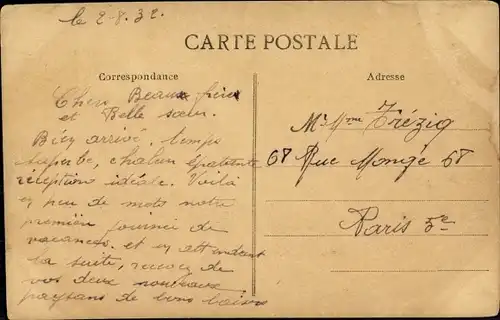 le 2-8.32
CARTE POSTALE
Correspondance
Adresse
Chers Beaux frère
et Belle sœur.
Bien arrivé, temps
superbe, chaleur épatante
réception idéale. Voilà
en peu de mots notre
première journée de
vacances. et en attendant
la suite, recevez de
vos deux nouveaux
paysans de bons baisers
Mr Mme Trézig
68 Rue Monge 68
Paris 5e